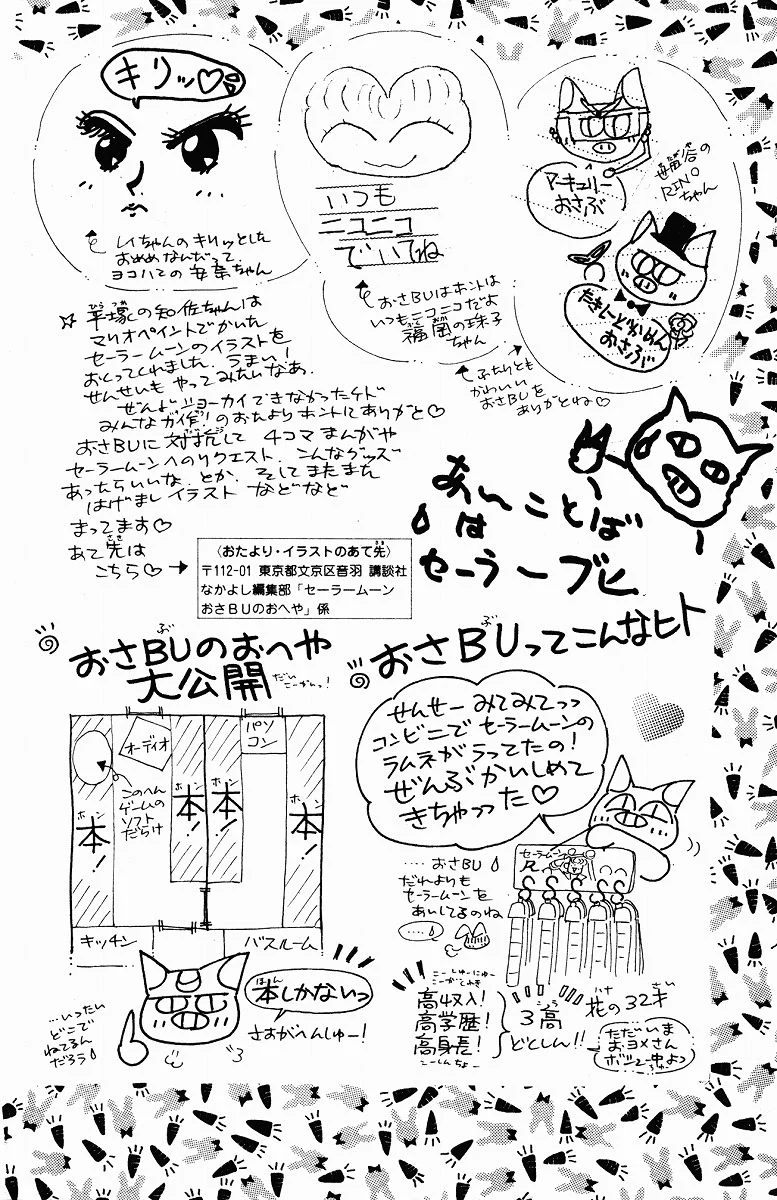 キリッ♡
レイちゃんのキリッとした
おめめなんだって
ヨコハマの安奈ちゃん
いつも
ニコニコ
でいてね
おさBUはホントは
いつもニコニコだよ
福岡の珠子
ちゃん
マーキュリー
おさぶ
世田谷の
RINO
ちゃん
たきしーどかめん
おさぶ
ふたりとも
かわいい
おさBUを
ありがとね♡
☆平塚の知佐ちゃんは
マリオペイントでかいた
セーラームーンのイラストを
おくってくれました。うまい!
せんせいも やってみたいなあ.
ぜんぶ ショーカイできなかったケド
みんな力作!のおたよりホントにありがと♡
おさBUに対抗して 4コマまんがや
セーラームーンへのリクエスト. こんなグッズ
あったらいいな とか. そしてまたまた
はげましイラスト などなど
まってます♡
あて先は
こちら♡→
〈おたより・イラストのあて先〉
〒112-01 東京都文京区音羽 講談社
なかよし編集部「セーラームーン
おさBUのおへや」係
あいことば
は
セーラーブヒ
おさBUのおへや
大公開
だいこーかいっ!
オーディオ
パソ
コン
このへん
ゲームの
ソフト
だらけ
本!
本!
本!
本!
キッチン
バスルーム
本しかないっ
さすがへんしゅー!
…いったい
どこで
ねてるん
だろう
おさBUってこんなヒト
せんせー みてみてっっ
コンビニで セーラームーンの
ラムネがうってたの!
ぜんぶかいしめて
きちゃった♡
セーラームーン
R
‥‥おさBU
だれよりも
セーラームーンを
あいしてるのね
こーしゅーにゅー
こーがくれき
高収入!
高学歴!
高身長!
こーしんちょー
3高
どくしん!!
花の32才
ただいま
およメさん
ボシュー中よっ